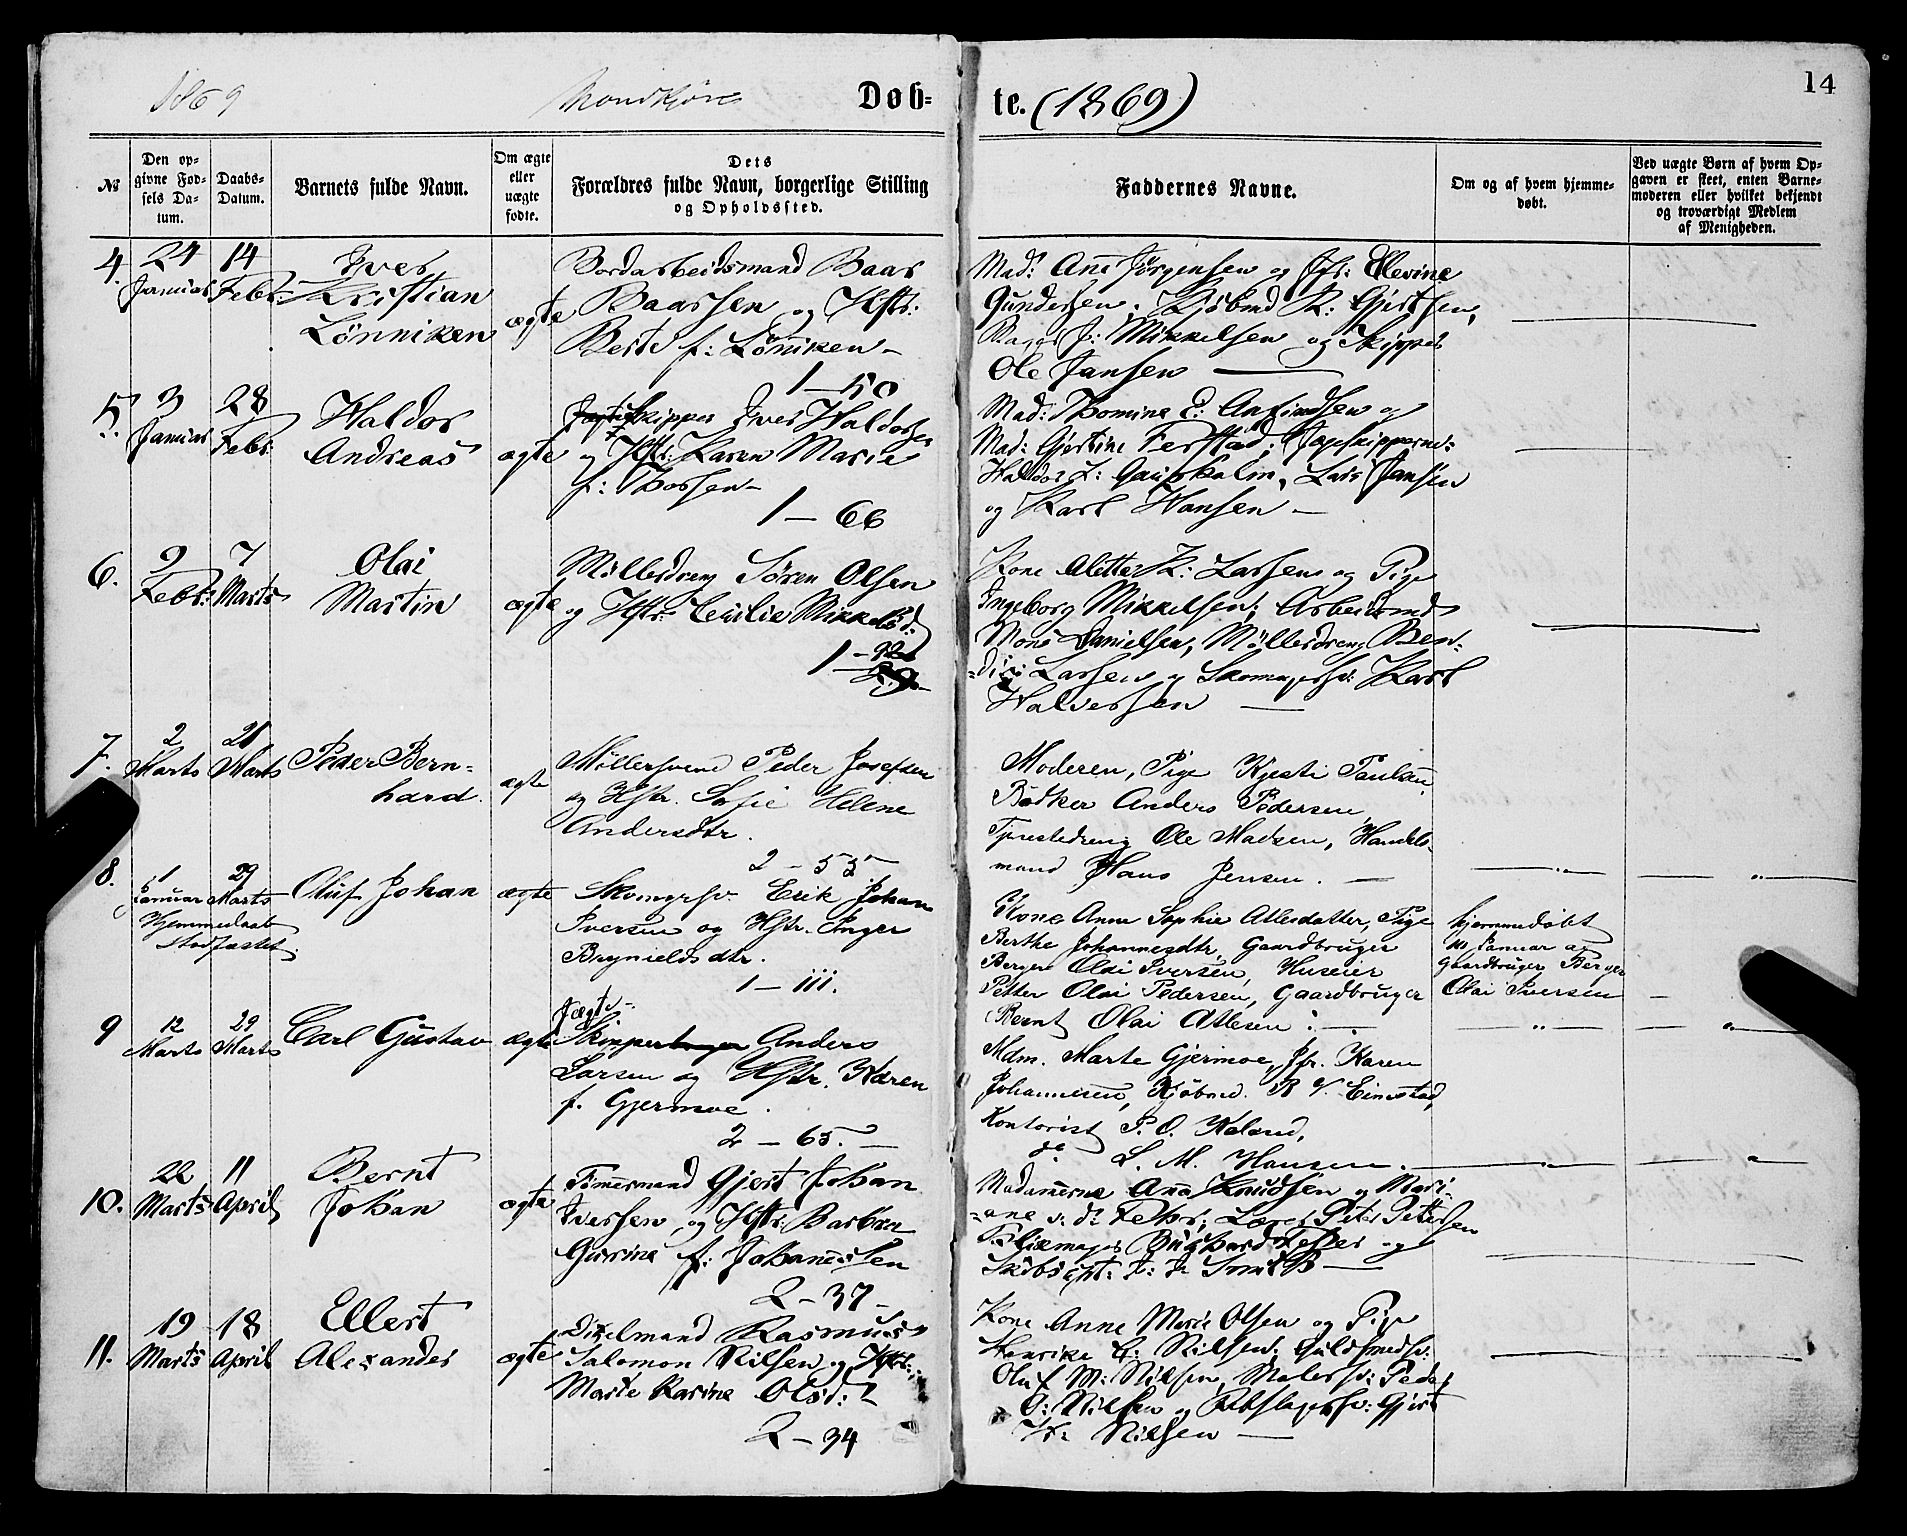 1869 Mandkjøn Døb= te. (1869) 14
№
Den op=
givne Fød=
sels Da=
tum.
Daabs=
Datum.
Barnets fulde Navn.
Om ægte
eller
uægte
fødte.
Dets
Forældres fulde Navn, borgerlige Stilling
og Opholdssted.
Faddernes Navne.
Om og af hvem hjemme=
døbt.
Ved uægte Børn af hvem Op=
gaven er skeet, enten Barne=
moderen eller hvilket bekjendt
og troværdigt Medlem
af Menigheden.
4. 24 Januar 14 Febr:
Iver
Kristian
Lönniken
ægte
Bordarbeidsmand Baar
Baarsen og Hstr:
Berte f: Lönniken –
1 – 50
Mad: Ana Jörgensen og Jfr: Ellevine
Gundersen, Kjöbmd R: Gjertsen,
Bager J: Mikkelsen og Skipper
Ole Jansen
5. 3 Januar 28 Febr:
Haldor
Andreas
ægte
Skipper Iver Haldorsen
og Hstr: Karen Marie
f: Thorsen –
1 – 66
Mad: Thomine E: Amundsen og
Mad: Gjertine Ferstad; Jægtskipperne:
Haldor I: Lars Jansen
og Karl Hansen –
6. 9 Febr: 7 Marts
Olai
Martin
ægte
Möllerdreng Sören Olsen
og Hstr: Cecilie Mikkelsd:
1 –
Kone Alette K: Larsen og Pige
Ingeborg Mikkelsen; Arbeidsmd
Mons Danielsen, Möllerdreng Ben=
=dix Larsen og Skomagersv: Karl
Halversen
7. 2 Marts 21 Marts
Peder Bern=
hard.
ægte
Möllersvend Peder Josefsen
og Hstr. Sofie Helene
Andersdtr.
2 – 55
Moderen, Pige Kjesti Paulsen,
Bödker Anders Pedersen,
Tjenestedreng Ole Madsen, Handels=
mand Hans Jensen. –
8. 1 Januar 29 Marts
Hjemmedaab
Stadfæstet.
Oluf Johan
ægte
Skomgrsv. Erik Johan
Iversen og Hstr. Inger
Brynieldsdtr.
1 – 111.
Kone Anna Sophie Atlesdatter, Pige
Berthe Johannesdtr, Gaardbruger
Berger Olai Iversen, Huseier
Petter Olai Pedersen, Gaardbruger
Bernt Olai Atlesen
hjemmedöbt
10 Januar af
Gaardbruger Berger
Olai Iversen
9 12 Marts 29 Marts
Carl Gustav
ægte
Jægte=
Skipper Anders
Larsen og Hstr. Karen
f. Gjermoe.
2 – 65. –
Mdm. Marte Gjermoe, Jfr. Karen
Johannesen, Kjöbmd. R V. Einestad,
Kontorist P. O. Keland,
do L. M. Hansen.
10. 22 Marts 11 April
Bernt
Johan
ægte
Tömermand Gjert Johan
Iversen, og Hstr: Barbra
Gurine f: Johanessen
2 – 37 –
Madamerne Ana Knudsen og Mari=
=ane v: d: Fehr; Lærer Peter Petersen
og
Skibscpt: J: Jr Smith
11. 19 Marts 18 April
Ellert
Alexander
ægte
Dixelmand Rasmus
Salomon Nilsen og Hstr:
Marte Karine Olsd:
2 – 34
Kone Anne Marie Olsen og Pige
Henrike G: Nilsen; Guldsmedsv:
Oluf M: Nilsen, Malersv: Peder
O: Nilsen og Rebslagersv: Gjert
H: Nilsen